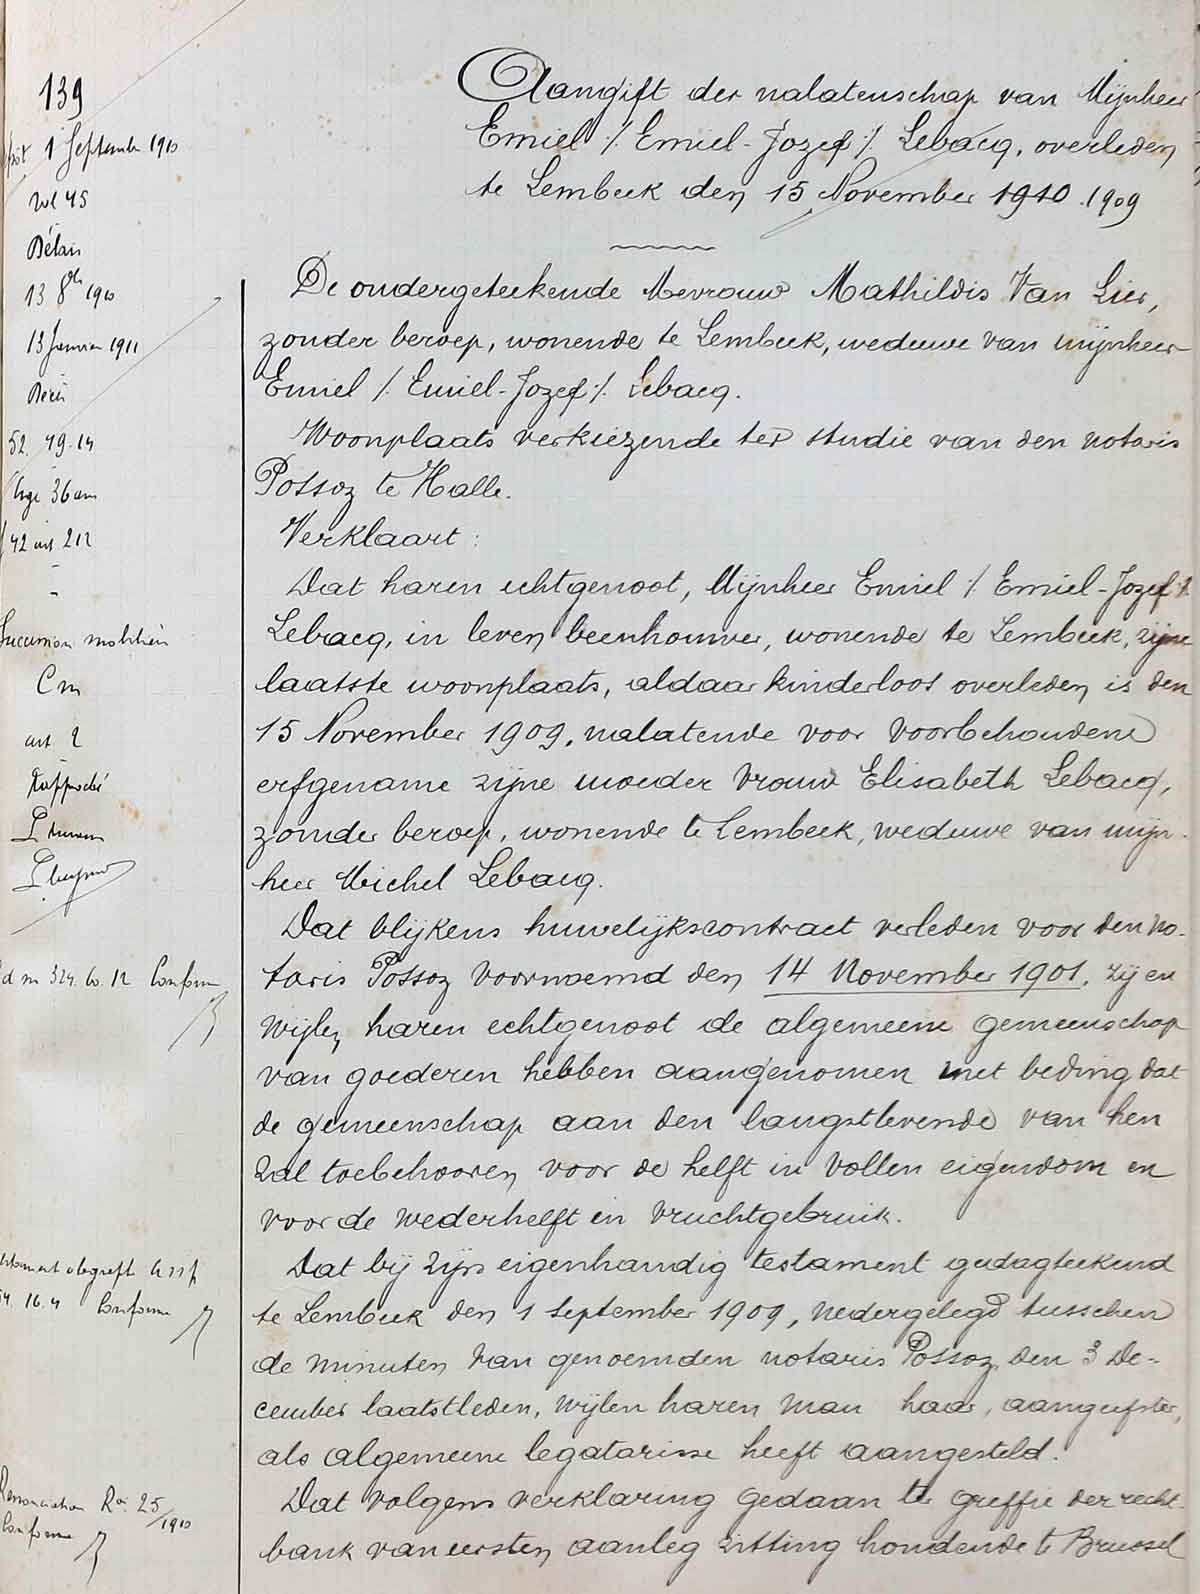 139
1 September 1910
vol 45
Délai
13 8bre 1910
13 Janvier 1911
52. 49. 14
age 36 ans
42 art 212
Succession mobilière
art 2
Conforme
Conforme
Renonciation Ren. 25/1910
Conforme
Aangift der nalatenschap van Mijnheer
Emiel /. Emiel-Jozef /. Lebacq, overleden
te Lembeek den 15 November 1910. 1909
De ondergeteekende Mevrouw Mathildis Van Lier,
zonder beroep, wonende te Lembeek, weduwe van mijnheer
Emiel /. Emiel-Jozef /. Lebacq.
Woonplaats verkiezende ter studie van den notaris
Possoz te Halle.
Verklaart:
Dat haren echtgenoot, Mijnheer Emiel /. Emiel-Jozef /.
Lebacq, in leven beenhouwer, wonende te Lembeek, zijne
laatste woonplaats, aldaar kinderloos overleden is den
15 November 1909, nalatende voor voorbehoudene
erfgename zijne moeder Vrouw Elisabeth Lebacq,
zonder beroep, wonende te Lembeek, weduwe van mijn-
heer Michel Lebacq.
Dat blijkens huwelijkscontract verleden voor den no-
taris Possoz voornoemd den 14 November 1901, zij en
wijlen haren echtgenoot de algemeene gemeenschap
van goederen hebben aangenomen met beding dat
de gemeenschap aan den langstlevende van hen
zal toebehooren voor de helft in vollen eigendom en
voor de wederhelft in vruchtgebruik.
Dat bij zijn eigenhandig testament gedagteekend
te Lembeek den 1 September 1909, nedergelegd tusschen
de minuten van genoemden notaris Possoz den 3 De-
cember laatstleden, wijlen haren man haar, aangeefster,
als algemeene legatarisse heeft aangesteld.
Dat volgens verklaring gedaan te greffie der recht-
bank van eersten aanleg zitting houdende te Brussel